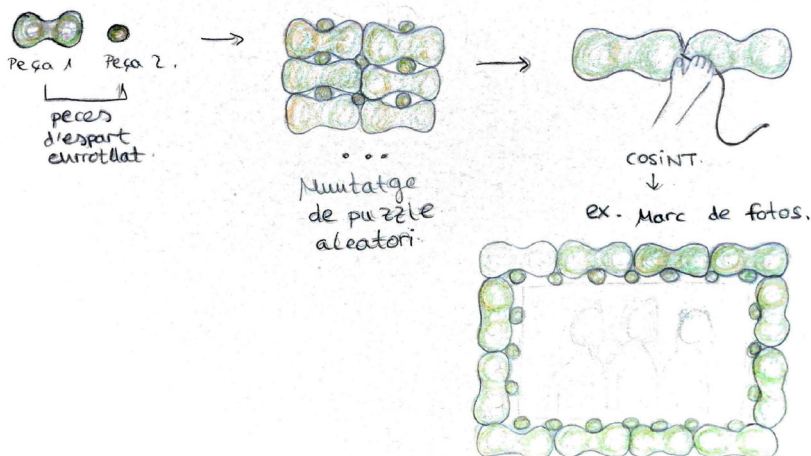 Peça 1
Peça 2.
peces
d'espart
enrotllat.
Muntatge
de puzzle
aleatori.
cosiNT.
ex. Marc de fotos.